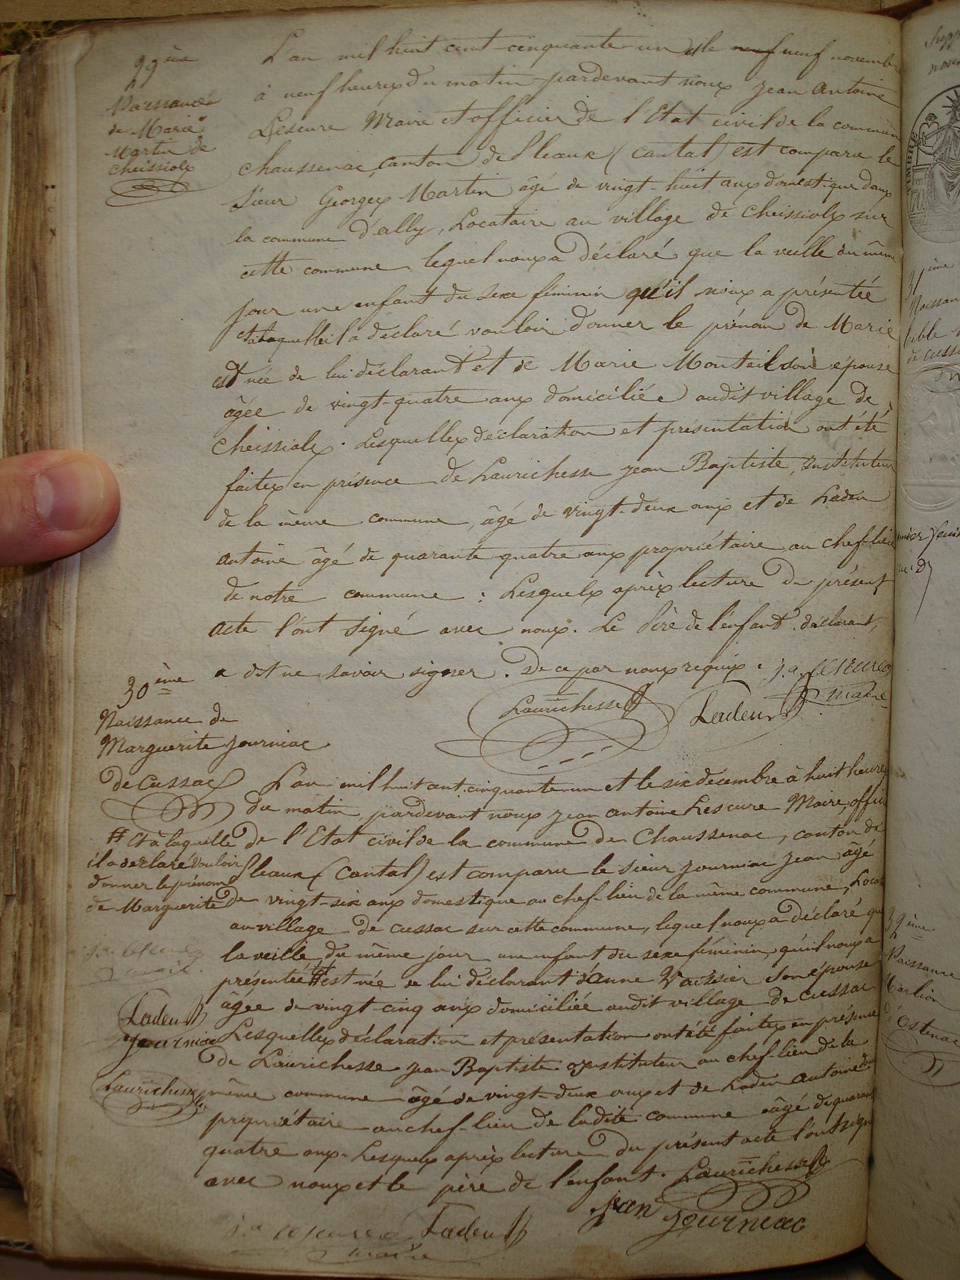 29ème
Naissance
de Marie
Martin de
Cheissiolx
L'an mil huit cent cinquante un et le neuf novembre
à neuf heures du matin pardevant nous Jean Antoine
Lescure Maire et officier de l'Etat civil de la commune
Chaussenac, canton de Pleaux (Cantal) est comparu le
Sieur Georges Martin âgé de vingt-huit ans domestique dans
la commune d'ally, Locataire au village de Cheissiolx sur
cette commune, lequel nous a déclaré que la veille du même
jour une enfant du sexe féminin qu'il nous a présentée
et à laquelle il a déclaré vouloir donner le prénom de Marie
est née de lui déclarant et de Marie Monteil son épouse
âgée de vingt-quatre ans domiciliée audit village de
Cheissiolx. Lesquelles déclaration et présentation ont été
faites en présence de Laurichesse Jean Baptiste, Instituteur
de la même commune, âgé de vingt-deux ans et de Ladeu
antoine âgé de quarante quatre ans propriétaire au chef-lieu
de notre commune : Lesquels après lecture du présent
acte l'ont signé avec nous. Le Père de l'enfant déclarant,
a dit ne savoir signer. De ce par nous requis. J. a. Lescure
maire
Laurichesse Ladeu
30ème
Naissance de
Marguerite Journiac
de Cussac
L'an mil huit cent cinquante un et le six décembre à huit heures
du matin, pardevant nous Jean antoine Lescure Maire, officier
de l'Etat civil de la commune de Chaussenac, canton de
Pleaux (Cantal) est comparu le sieur Journiac Jean âgé
de vingt-six ans domestique au chef-lieu de la même commune, Locat
au village de Cussac sur cette commune, lequel nous a déclaré que
la veille du même jour une enfant du sexe féminin, qu'il nous a
présentée # est née de lui déclarant d'anne Vaissier son épouse
agée de vingt cinq ans domiciliée audit village de Cussac
Lesquelles déclaration et présentation ont été faites en présence
de Laurichesse Jean Baptiste Instituteur au chef-lieu de la
même commune âgé de vingt-deux ans et de Ladeu Antoine
propriétaire au chef-lieu de ladite commune âgé de quarante
quatre ans. Lesquels après lecture du présent acte l'ont signé
avec nous et le père de l'enfant. Laurichesse
Jean Journiac
J. a Lescure Ladeu
maire
# Et à laquelle
il a déclaré vouloir
donner le prénom
de Marguerite
J. a. Lescure
maire.
Ladeu
Journiac
Laurichesse
31ème
Naissance
32ème
Naissance